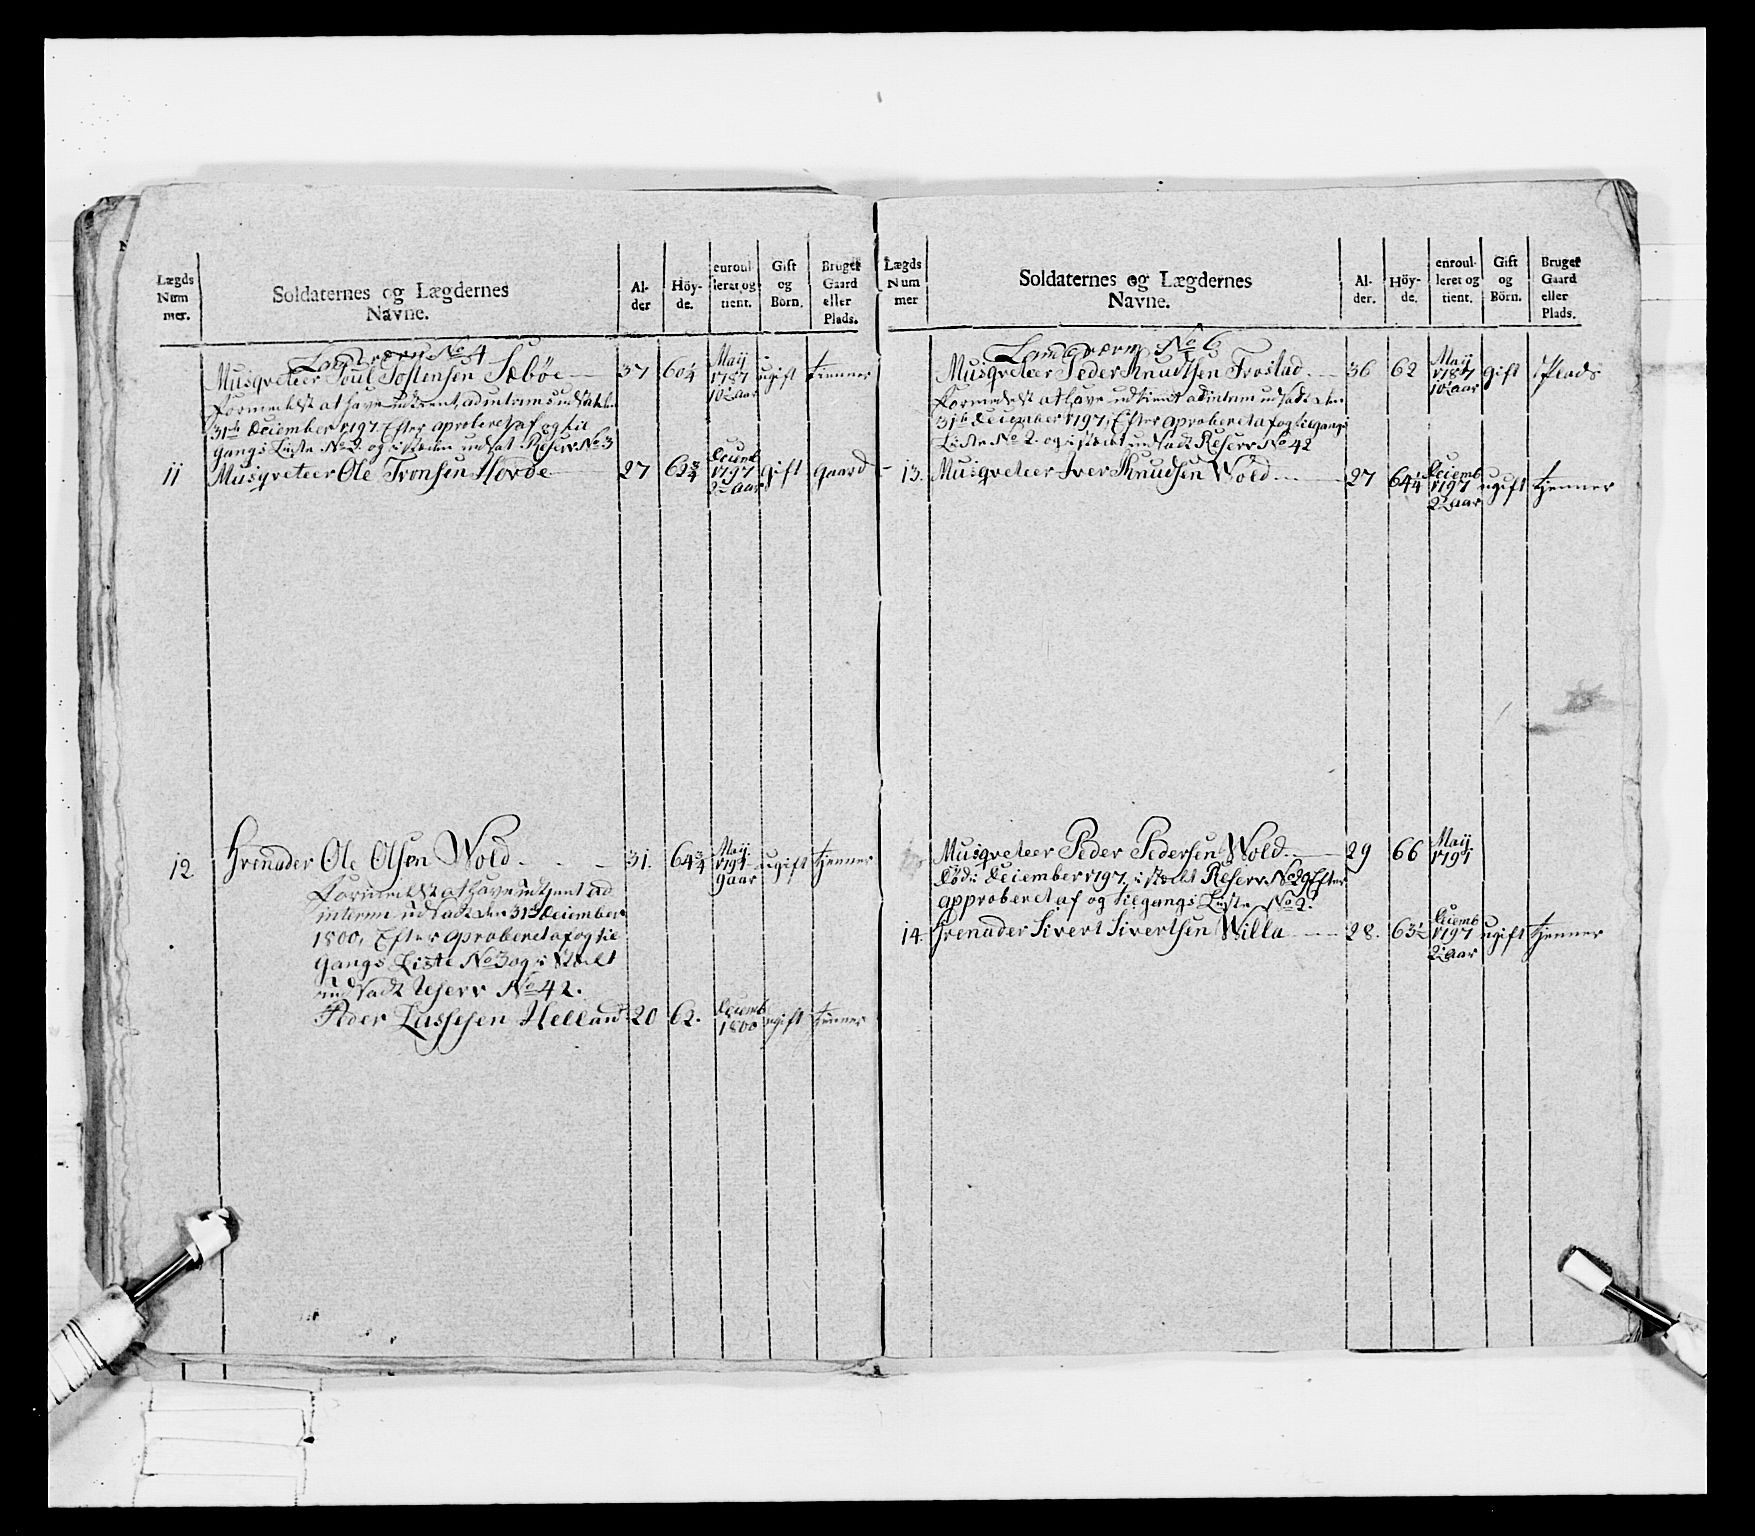 Lægds Num mer.
Soldaternes og Lægdernes Navne.
Al- der
Höy- de.
enroul- leret og tient.
Gift og Börn.
Bruget Gaard eller Plads.
Landværn No 4
Musqveteer Poul Jostensen Sæbøe 37 60¼ Maij 1787 10½ aar ugift tienner
formedelst at have udtient, ad interim udsat den
31te December 1797 Efter aproberet af og til
gangs Liiste No 2. og i stæden indsat Reserv No 3
11 Musqveteer Ole Tronsen Hovde 27 62¾ Decemb 1797 2½ aar gift gaard
12 Grenader Ole Olsen Wold 31. 64¾ Maij 1791 9 aar ugift tienner
formedelst at have udtient ad
interim udsadt den 31te December
1800, Efter aproberet af og til
gangs Liste No 3 og i stædet
indsadt Reserv No 42.
Peder Lassesen Helland 20 62. Decemb 1800 ugift tienner
Lægds Num mer
Soldaternes og Lægdernes Navne.
Al- der.
Höy- de.
enroul- leret og tient.
Gift og Börn.
Bruget Gaard eller Plads.
Landværn No 6
Musqveteer Peder Knudtsen Frostad 36 62 Maij 1787 10½ aar gift Plads
formedelst at have udtient ad interim udsadt den
31te December 1797, Efter aproberet af og til gangs
Liste No 2. og i stædet indsadt Reserv No 42
13. Musqveteer Iver Knudsen Wold 27 64¼ Decemb 1797 2½ aar ugift tjenner
Musqveteer Peder Pedersen Wold 29 66 Maij 1791
død i December 1797, i stædet Reserv No 29 Efter
approberet af og tilgangs Liiste No 2.
14. Grenader Sivert Sivertsen Willa 28. 63½ Decemb 1797 2½ aar ugift tjenner